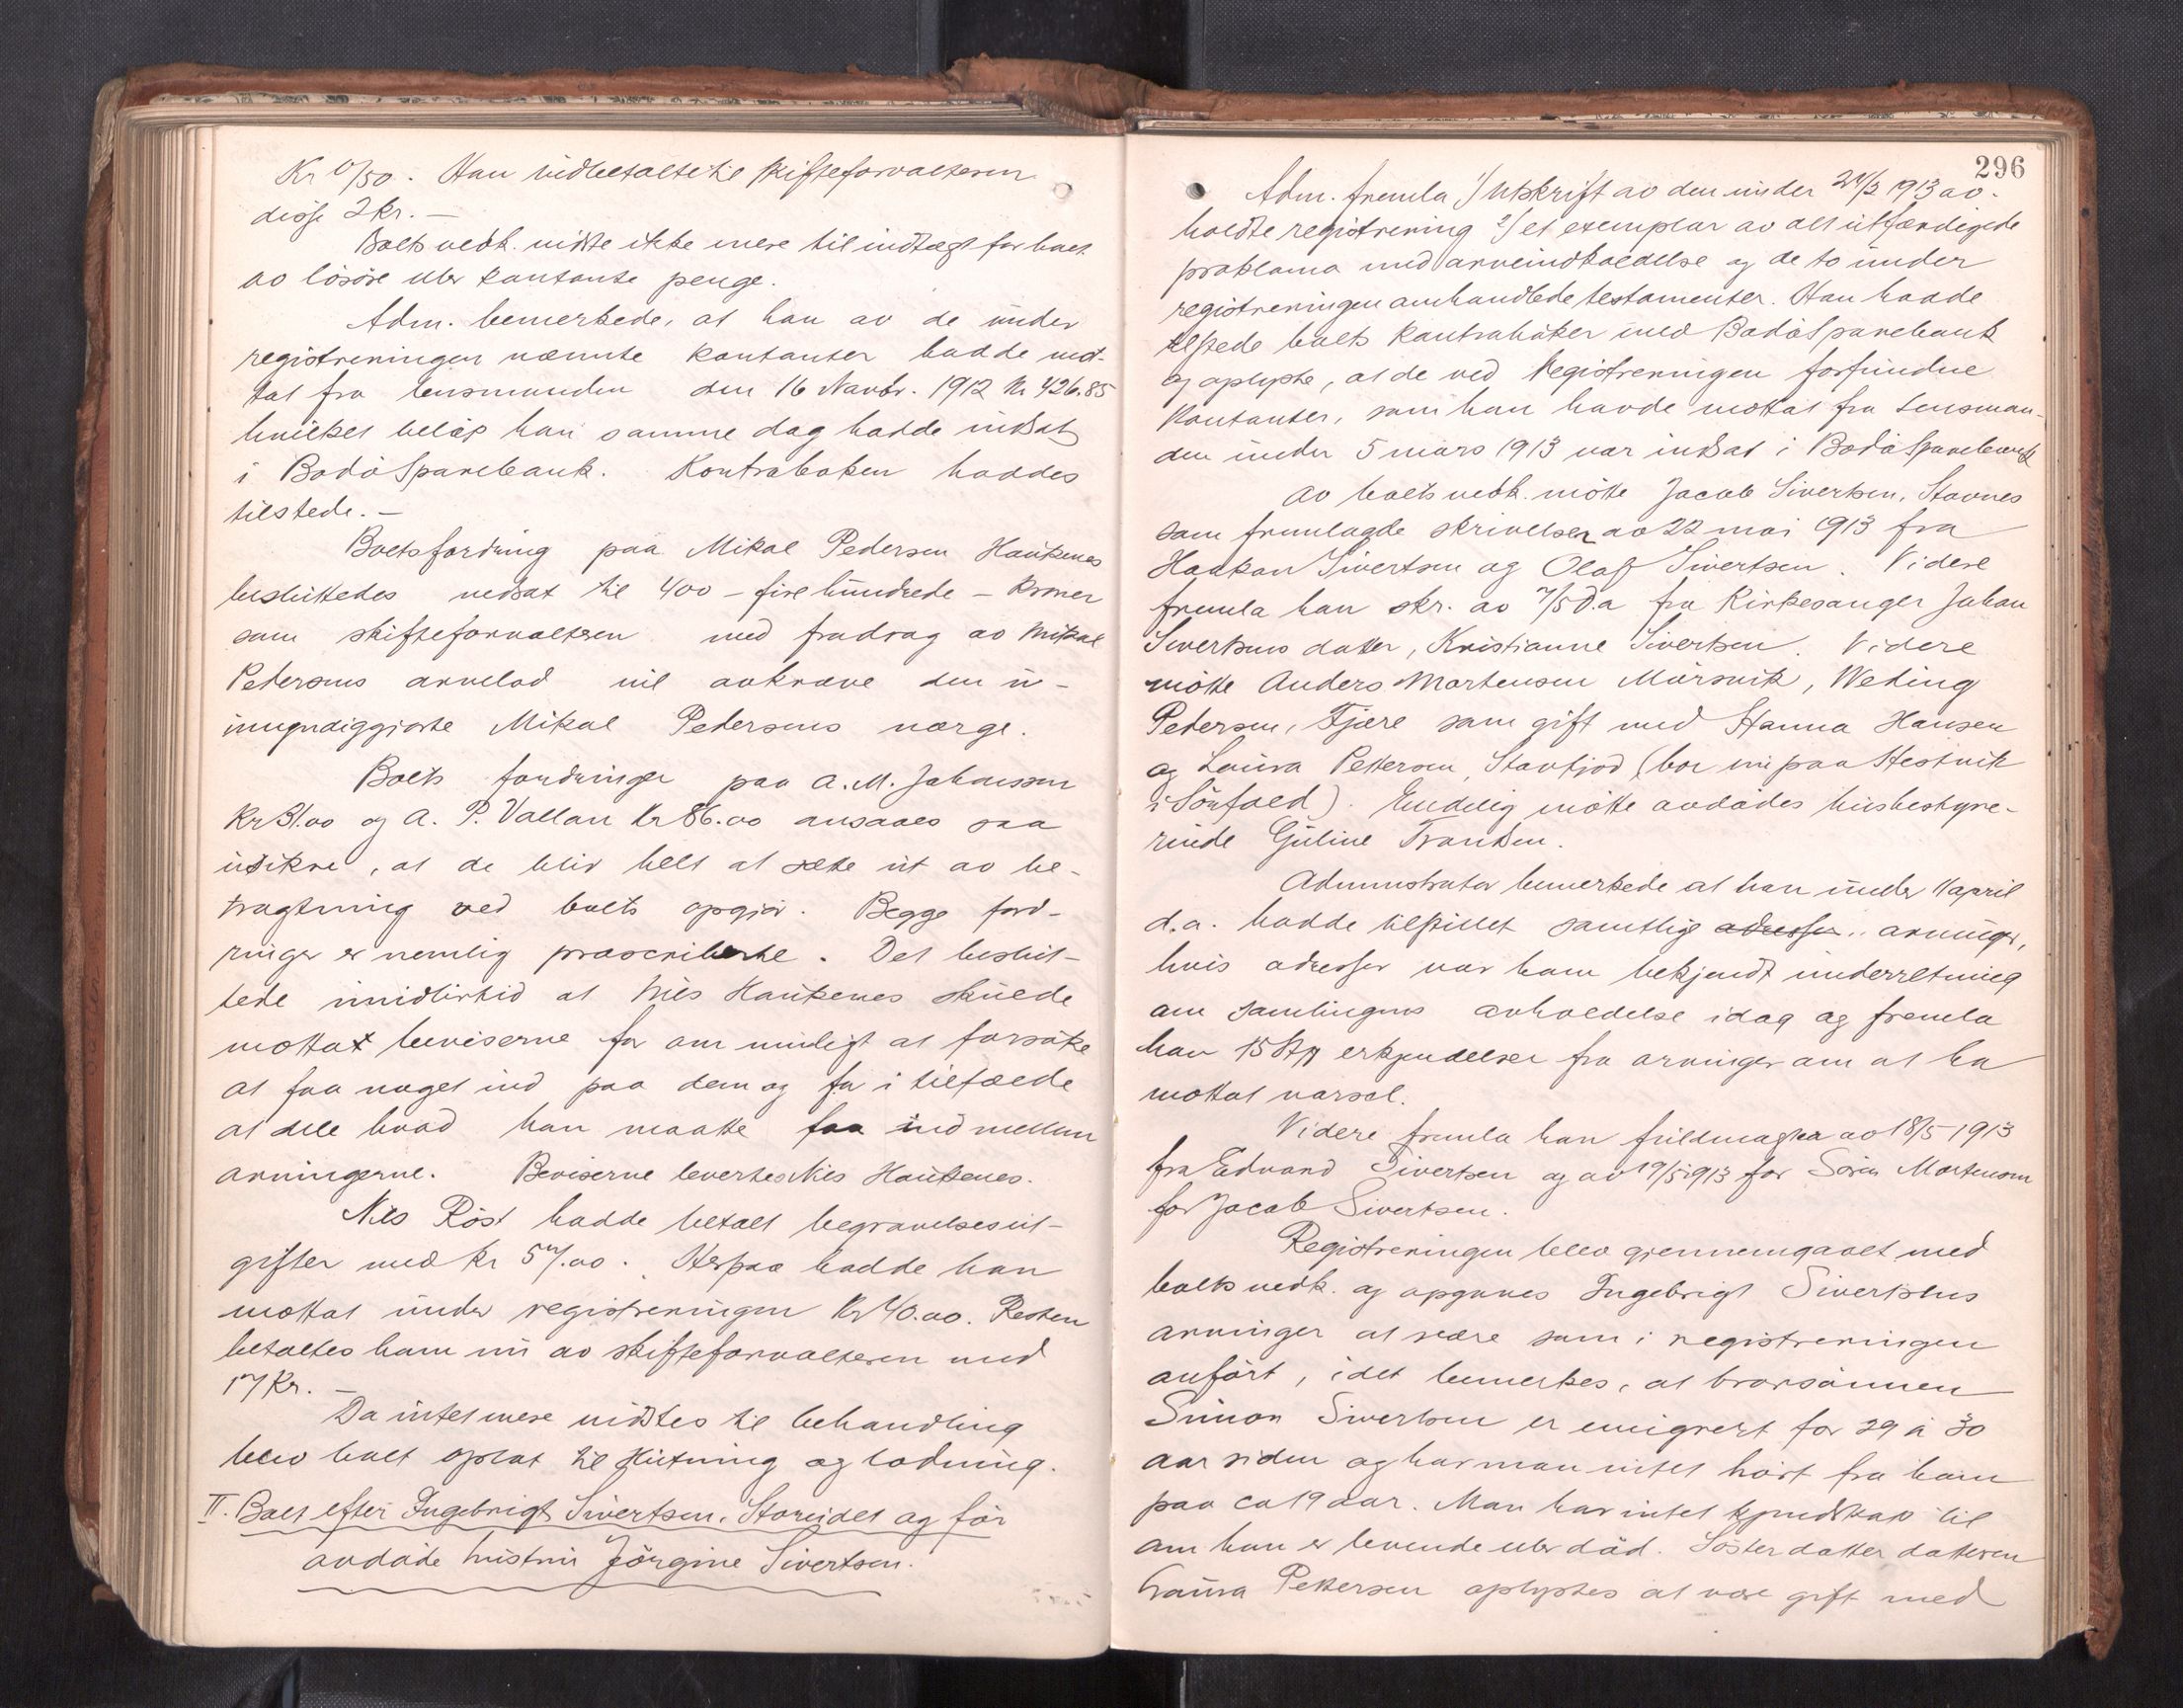 Kr 0/50. Han indbetalte til skifteforvalteren
disse 2 kr. —
Boets vedk. vidste ikke mere til indtægt for boet
av lösöre eller kontante penge.
Adm. bemerkede, at han av de under
registreringen nævnte kontanter hadde mot-
tat fra lensmanden den 16 Novbr. 1912 Kr 426.85
hvilket beløp han samme dag hadde indsat
i Bodö Sparebank. Kontraboken haddes
tilstede. —
Boets fordring paa Mikal Pedersen Haukenes
besluttedes nedsat til 400 – fire hundrede – kroner
som skifteforvalteren med fradrag av Mikal
Pedersens arvelod vil avkræve den u-
myndiggjorte Mikal Pedersens værge.
Boets fordringer paa A. M. Johanssen
Kr 31.00 og A. P. Vallan Kr 86.00 ansaaes saa
usikre, at de blir helt at sætte ut av be-
tragtning ved boets opgjör. Begge ford-
ringer er nemlig præscriberte. Det beslut-
tede imidlertid at Nils Haukenes skulede
motta beviserne for om muligt at forsöke
at faa noget ind paa dem og fa i tilfælde
at dele hvad han maatte faa ind mellem
arvingerne. Beviserne levertes Nils Haukenes.
Nils Röst hadde betalt begravelsesut-
gifter med kr 57.00. Herpaa hadde han
mottat under registreringen Kr 40.00. Resten
betaltes ham nu av skifteforvalteren med
17 Kr. —
Da intet mere vidstes til behandling
blev boet optat til slutning og lodning.
II. Boet efter Ingebrigt Sivertsen, Storeidet og för
avdöde hustru Jörgine Sivertsen.
296
Adm. fremla 1) Utskrift av den under 24/2 1913 av-
holdte registrering 2) et exemplar av alt utfærdigede
proklama med arveindkaldelse og de to under
registreringen omhandlede testamenter. Han hadde
tilstede boets kontraböker med Bodö Sparebank
og oplyste, at de ved Registreringen forfundne
Kontanter, som han havde mottat fra Lensman-
den under 5 mars 1913 var indsat i Bodö Sparebank
Av boets vedk. mötte Jacob Sivertsen, Stavnes
som fremlagde skrivelser av 22 mai 1913 fra
Haakon Sivertsen og Olaf Sivertsen. Videre
fremla han skr. av 7/5 d.a fra Kirkesanger Johan
Sivertsens datter, Kristianne Sivertsen. Videre
mötte Anders Mortensen Mörsvik, Weding
Petersen, Fjære som gift med Hanna Hansen
og Laura Pettersen, Stavfjod (bor nu paa Hestvik
i Sörfold). Endelig mötte avdödes husbestyre-
rinde Guline Frantsen.
Administrator bemerkede at han under 11 april
d.a. hadde tilstillet samtlige adresser arvinger,
hvis adresser var ham bekjendt underretning
om samlingens avholdelse idag og fremla
han 15 stk erkjendelser fra arvinger om at ha
mottat varsel.
Videre fremla han fuldmagter av 18/5 1913
fra Edvard Sivertsen og av 19/5 1913 for Sören Mortensen
for Jacob Sivertsen.
Registreringen blev gjennemgaaet med
boets vedk. og opgives Ingebrigt Sivertsens
arvinger at være som i registreringen
anfört, idet bemerkes, at brorsönnen
Simon Sivertsen er emigrert for 29 à 30
aar siden og har man intet hört fra ham
paa ca 19 aar. Man har intet kjendskap til
om han er levende eller död. Sösterdatterdatteren
Laura Pettersen oplystes at være gift med